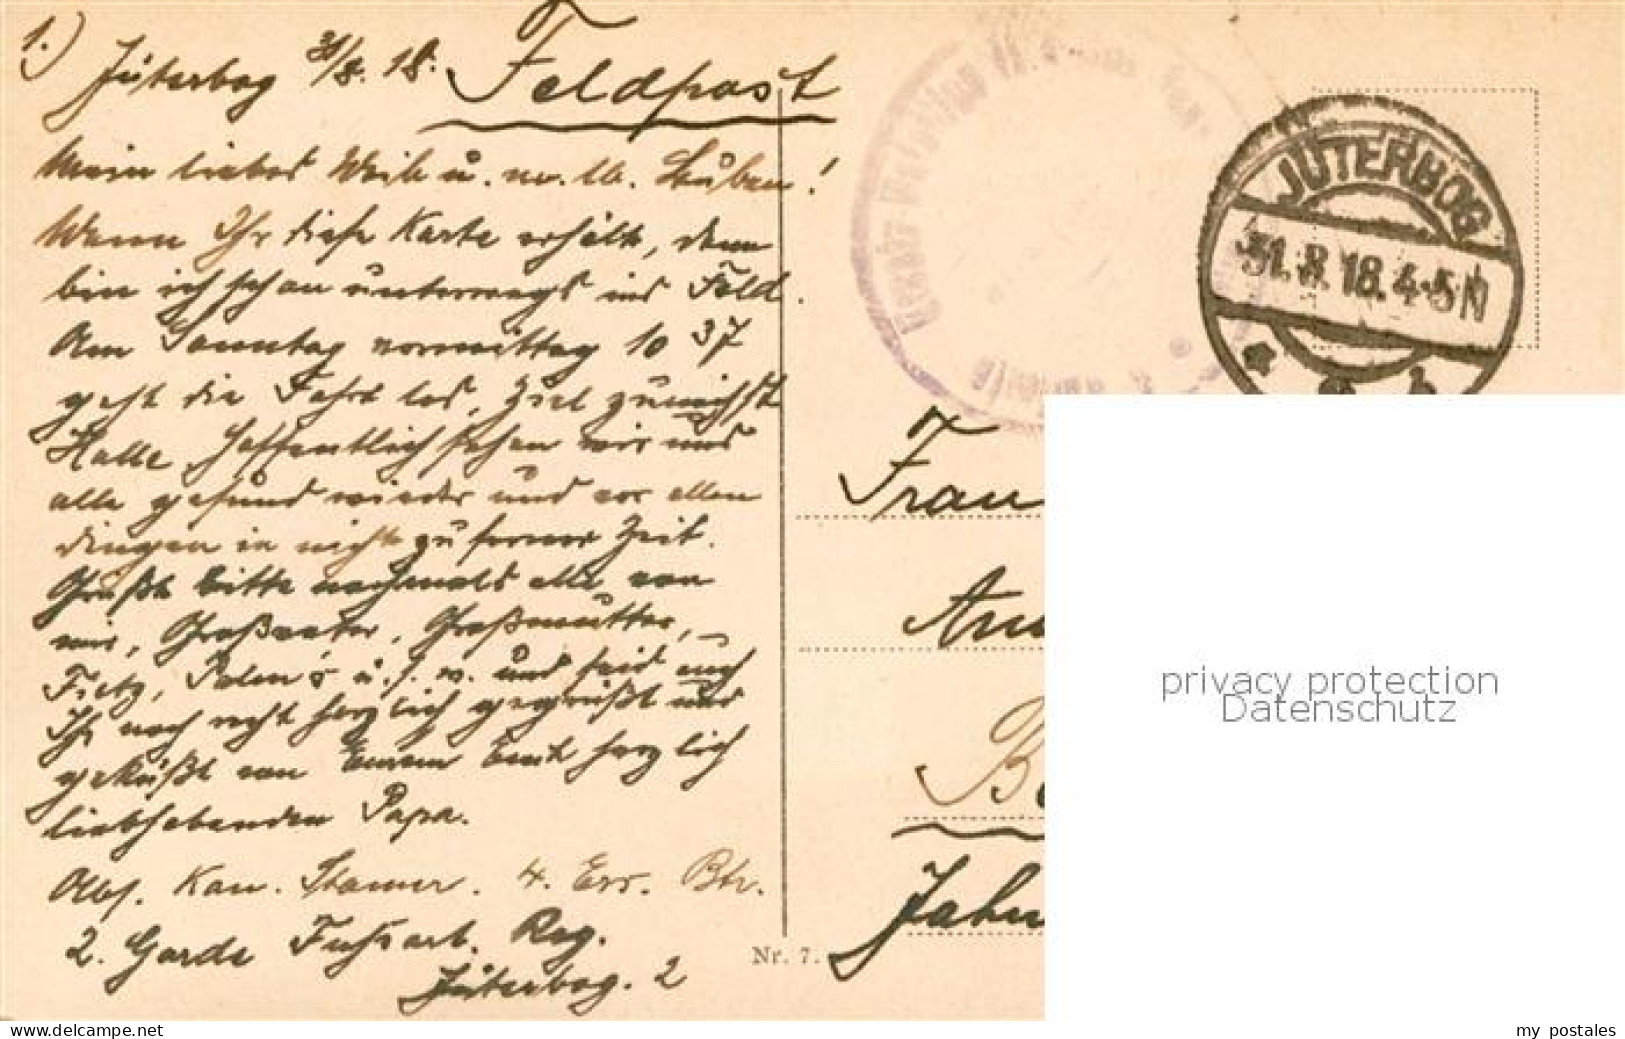 1.)
Jüterbog 31/8. 18. Feldpost
Mein liebes Weib u. m. lb. Buben!
Wenn Ihr diese Karte erhält, dann
bin ich schon unterwegs ins Feld.
Am Sonntag vormittag 10 37
geht die Fahrt los, Ziel zunächst
Halle. Hoffentlich sehen wir uns
alle gesund wieder und vor allen
dingen in nicht zu ferner Zeit.
Grüßt bitte nochmals alle von
mir, Großvater, Großmutter,
u. s. w. und seid auch
Ihr noch recht herzlich gegrüßt und
geküßt von Eurem Euch herzlich
liebhabenden Papa.
Abs. Kan. Stamer. 4. Ers. Btr.
2. Garde Fußart. Reg.
Jüterbog. 2
JÜTERBOG
31.8.18.4-5N
Frau
Jahn
Nr. 7.
privacy protection
Datenschutz
www.delcampe.net
my_postales